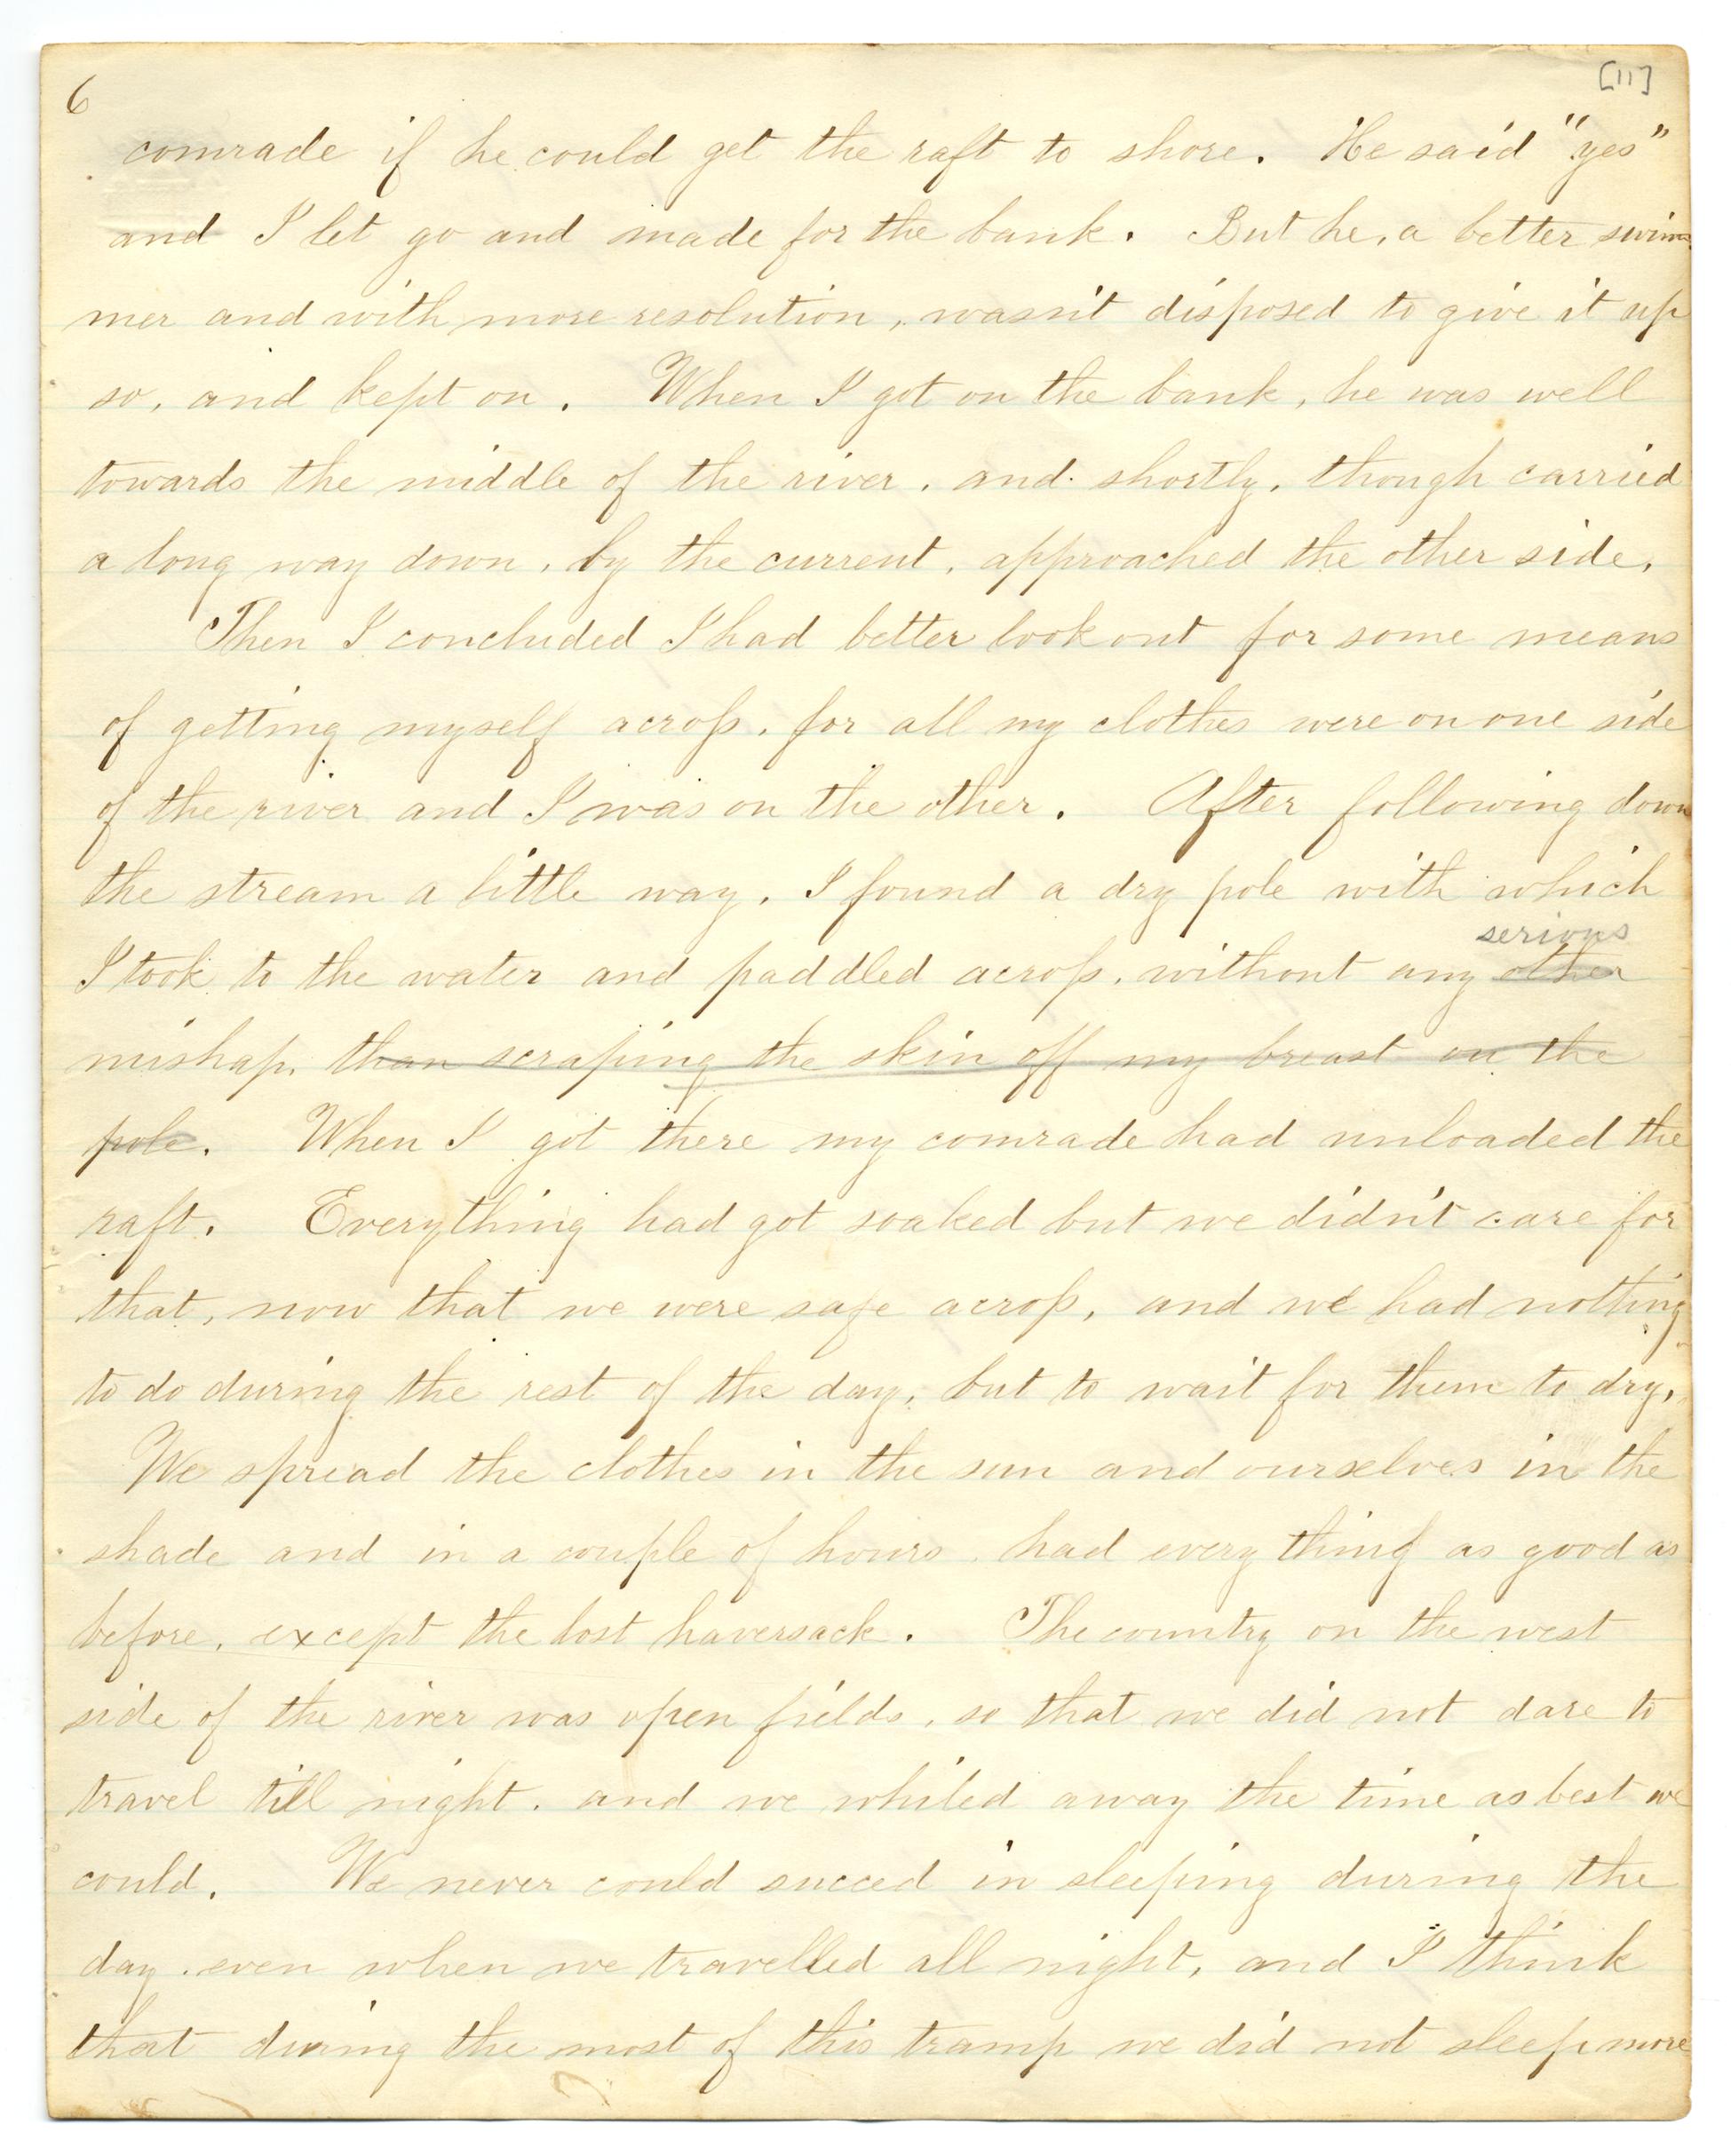 6
[11]
comrade if he could get the raft to shore. He said "yes"
and I let go and made for the bank. But he, a better swim-
mer and with more resolution, wasn't disposed to give it up
so, and kept on. When I got on the bank, he was well
towards the middle of the river, and shortly, though carried
a long way down, by the current, approached the other side.
Then I concluded I had better look out for some means
of getting myself across, for all my clothes were on one side
of the river and I was on the other. After following down
the stream a little way, I found a dry pole with which
serious
I took to the water and paddled across, without any other
mishap, than scraping the skin off my breast on the
pole. When I got there my comrade had unloaded the
raft. Everything had got soaked but we didn't care for
that, now that we were safe across, and we had nothing
to do during the rest of the day, but to wait for them to dry.
We spread the clothes in the sun and ourselves in the
shade and in a couple of hours had every thing as good as
before, except the lost haversack. The country on the west
side of the river was open fields, so that we did not dare to
travel till night, and we whiled away the time as best we
could. We never could succed in sleeping during the
day, even when we travelled all night, and I think
that during the most of this tramp we did not sleep more